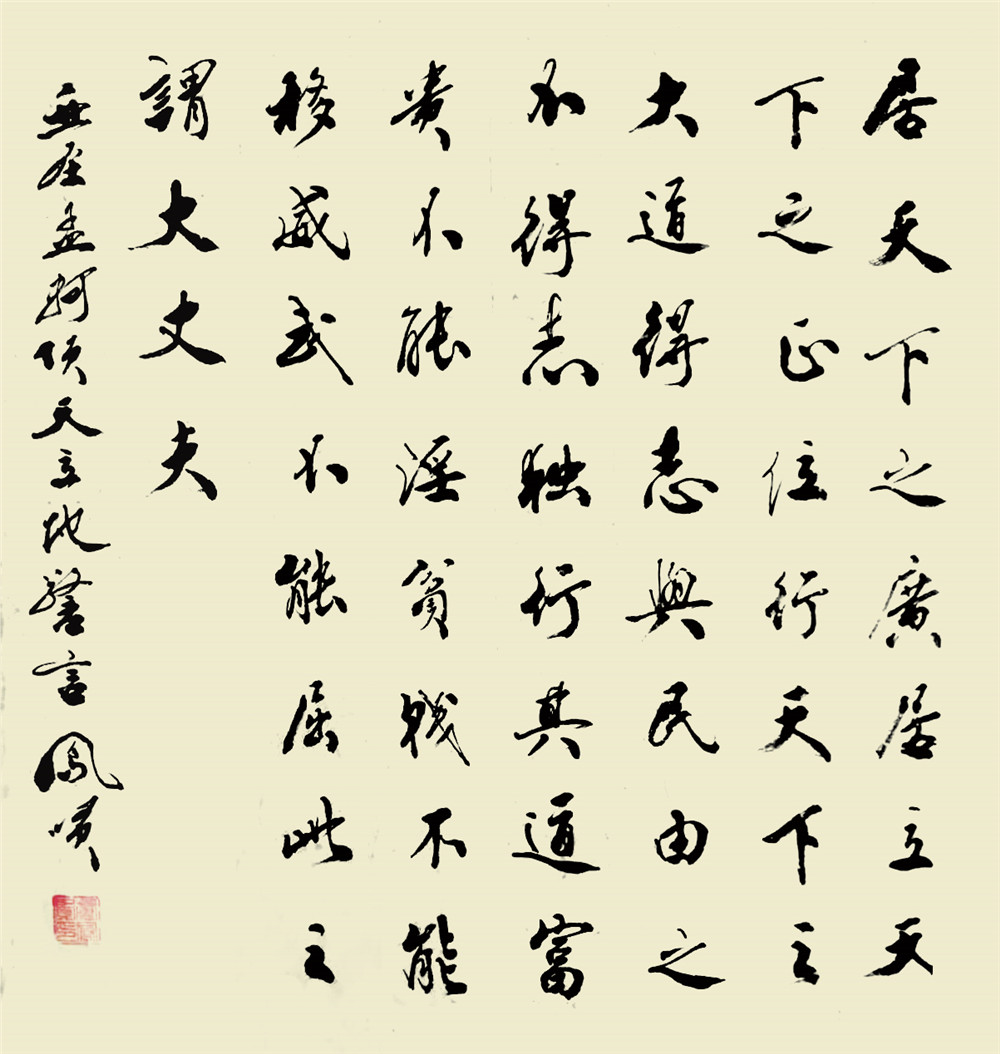 居天下之廣居立天
下之正位行天下之
大道得志與民由之
不得志独行其道富
貴不能淫貧賤不能
移威武不能屈此之
謂大丈夫
亞圣孟軻顶天立地警言鳳